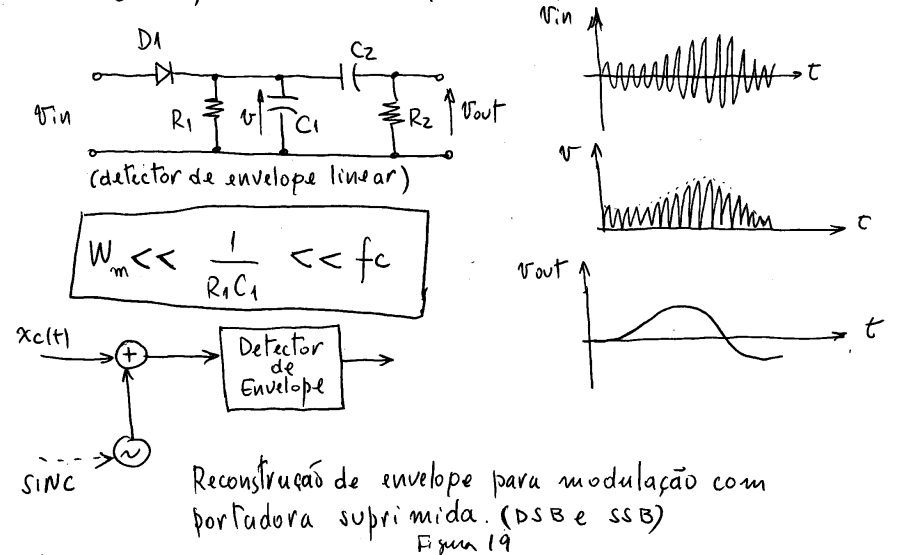 D1
C2
vin
R1
v
C1
R2
vout
(detector de envelope linear)
Wm << 1/R1C1 << fc
xc(t)
+
Detector
de
Envelope
~
SINC
vin
t
v
t
vout
t
Reconstrução de envelope para modulação com
portadora suprimida. (DSB e SSB)
Figura 19